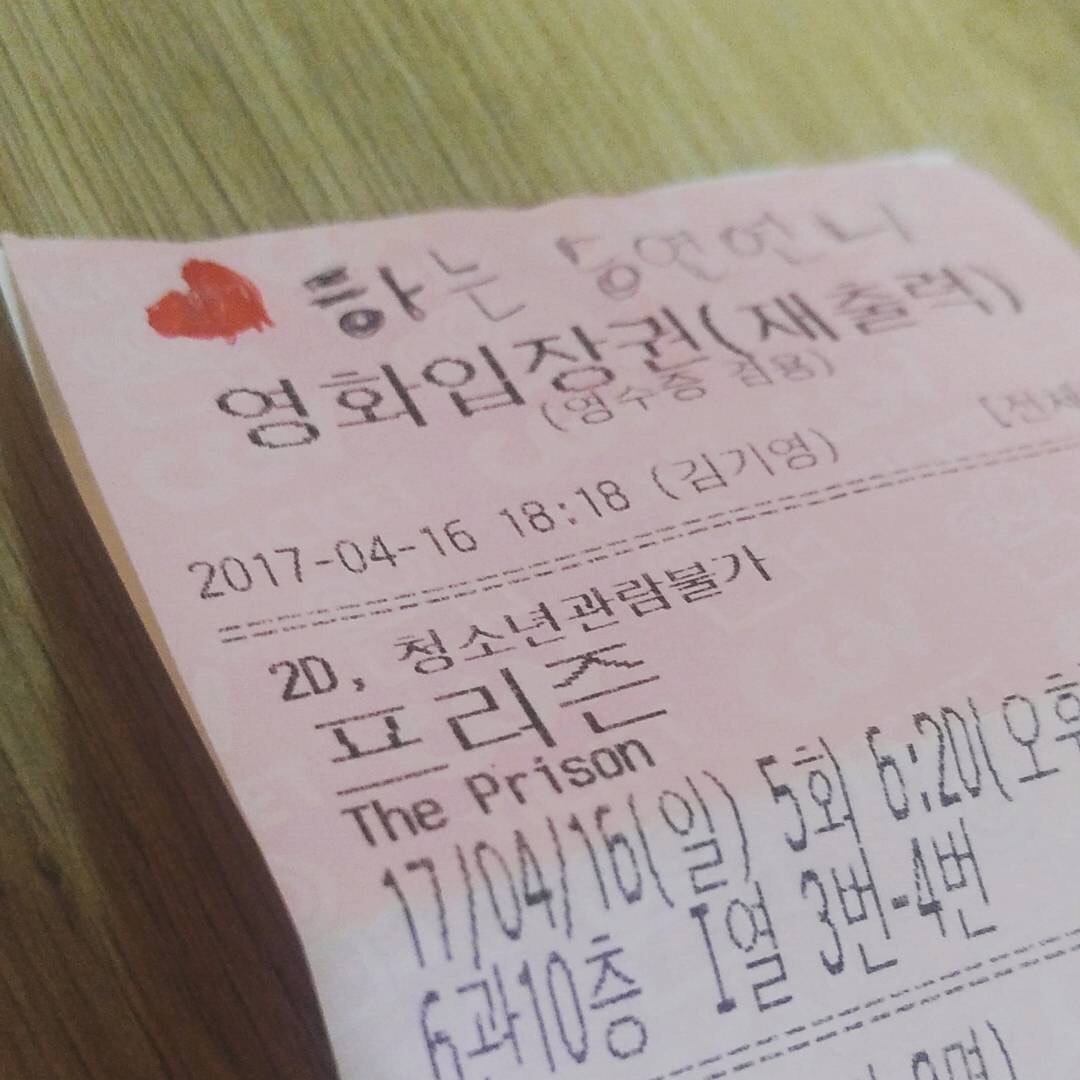 하는
영화입장권(재출력)
(영수증 겸용)
[전체
2017-04-16 18:18 (김기영)
2D, 청소년관람불가
프리즌
The Prison
17/04/16(일) 5회 6:20(오후
6관10층 I열 3번-4번